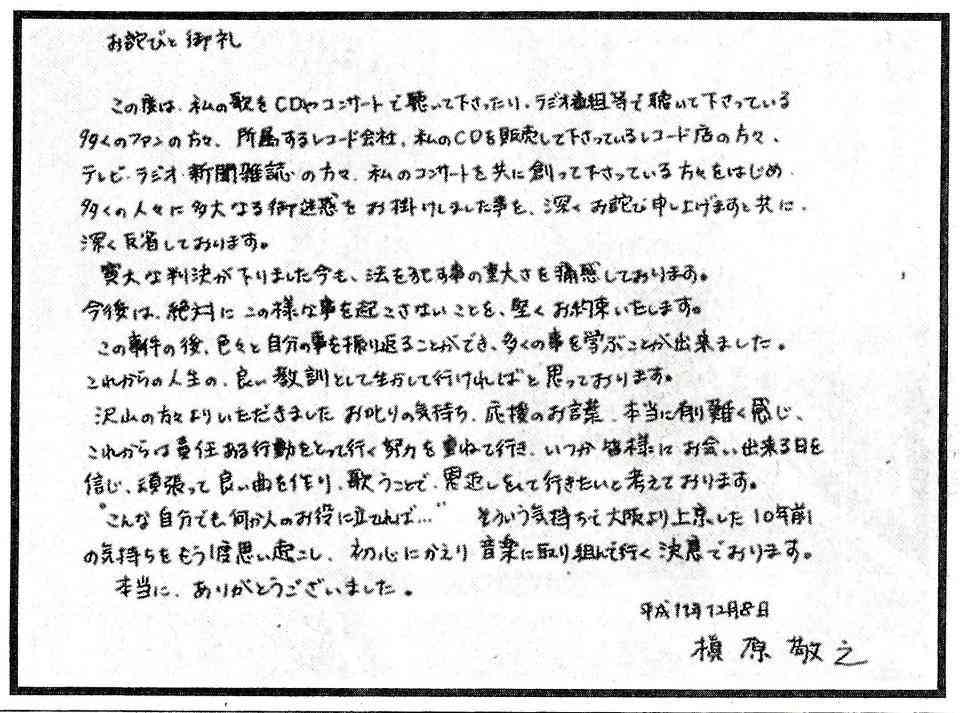 お詫びと御礼
この度は、私の歌をCDやコンサートで聴いて下さったり、ラジオ番組等で聴いて下さっている
多くのファンの方々、所属するレコード会社、私のCDを販売して下さっているレコード店の方々、
テレビ・ラジオ・新聞雑誌の方々、私のコンサートを共に創って下さっている方々をはじめ、
多くの人々に多大なる御迷惑をお掛けしました事を、深くお詫び申し上げますと共に、
深く反省しております。
寛大な判決が下りました今も、法を犯す事の重大さを痛感しております。
今後は、絶対にこの様な事を起こさないことを、堅くお約束いたします。
この事件の後、色々と自分の事を振り返ることができ、多くの事を学ぶことが出来ました。
これからの人生の、良い教訓として生かして行ければと思っております。
沢山の方々よりいただきましたお叱りの気持ち、応援のお言葉、本当に有り難く感じ、
これからは責任ある行動をとって行く努力を重ねて行き、いつか皆様にお会い出来る日を
信じ、頑張って良い曲を作り、歌うことで、恩返しをして行きたいと考えております。
"こんな自分でも何か人のお役に立てれば…" そういう気持ちで大阪より上京した10年前
の気持ちをもう1度思い起こし、初心にかえり音楽に取り組んで行く決意でおります。
本当に、ありがとうございました。
平成11年12月8日
槇原敬之